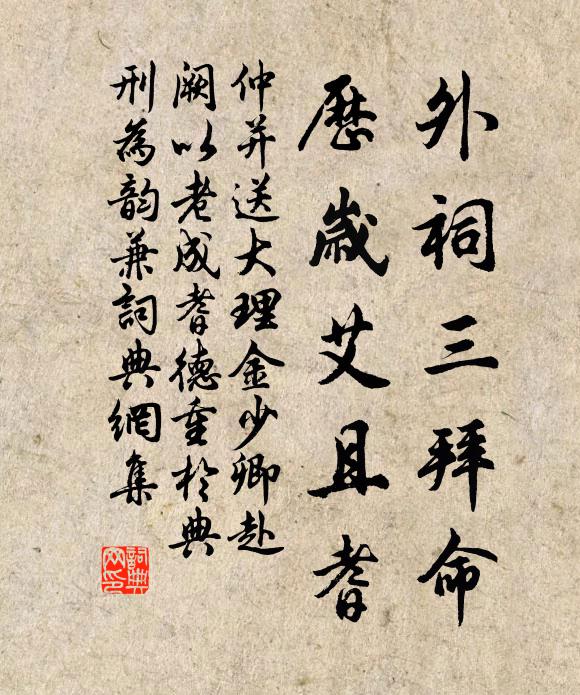 外祠三拜命
歷歲艾且耆
仲并送大理金少卿赴
闕以老成耆德重於典
刑為韵兼詞典網集
詞典网印